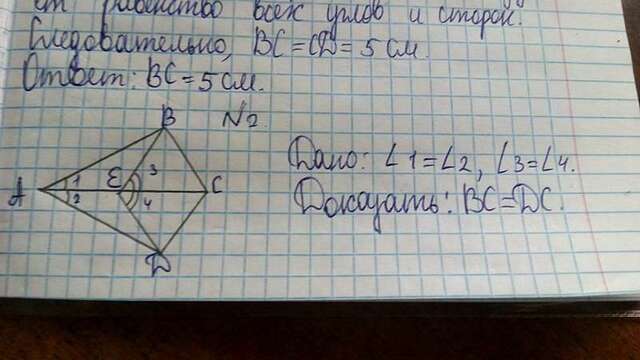 равенство всех углов и сторон.
Следовательно, BC = CD = 5 см.
Ответ: BC = 5 см.
N2
B
A 1 2 E 3 4 C
D
Дано: ∠1=∠2, ∠3=∠4.
Доказать: BC=DC.